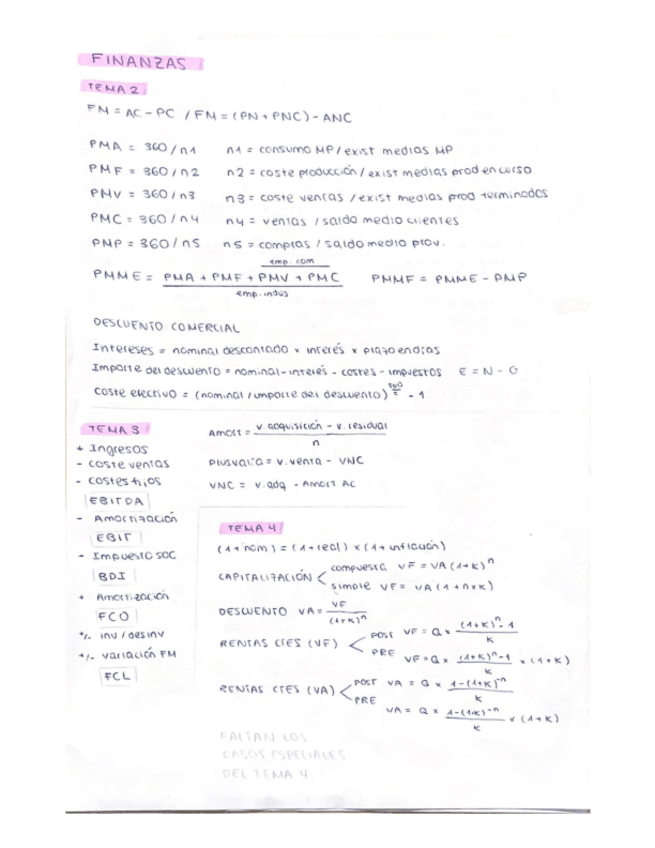 FINANZAS
TEMA 2
FM = AC - PC / FM = (PN + PNC) - ANC
PMA = 360/n1 n1 = consumo MP / exist medias MP
PMF = 360/n2 n2 = coste producción / exist medias prod en curso
PMV = 360/n3 n3 = coste ventas / exist medias prod terminados
PMC = 360/n4 n4 = ventas / saldo medio clientes
PMP = 360/n5 n5 = compras / saldo medio prov.
emp. com
PMME = PMA + PMF + PMV + PMC PMMF = PMME - PMP
emp. indus
DESCUENTO COMERCIAL
Intereses = nominal descontado × interés × plazo en días
Importe del descuento = nominal - interés - costes - impuestos E = N - G
Coste efectivo = (nominal / importe del descuento)^360/t - 1
TEMA 3
+ Ingresos
- coste ventas
- costes fijos
EBITDA
- Amortización
EBIT
- Impuesto soc
BDI
+ Amortización
FCO
+/- inv / desinv
+/- variación FM
FCL
Amort = v. adquisición - v. residual / n
Plusvalía = v. venta - VNC
VNC = v. adq - Amort AC
TEMA 4
(1 + nom) = (1 + real) × (1 + inflación)
CAPITALIZACIÓN < compuesta VF = VA (1+K)^n
simple VF = VA (1 + n × K)
DESCUENTO VA = VF / (1+K)^n
RENTAS CTES (VF) < POST VF = Q × (1+K)^n - 1 / K
PRE VF = Q × (1+K)^n - 1 / K × (1+K)
RENTAS CTES (VA) < POST VA = Q × 1 - (1+K)^-n / K
PRE VA = Q × 1 - (1+K)^-n / K × (1+K)
FALTAN LOS
CASOS ESPECIALES
DEL TEMA 4